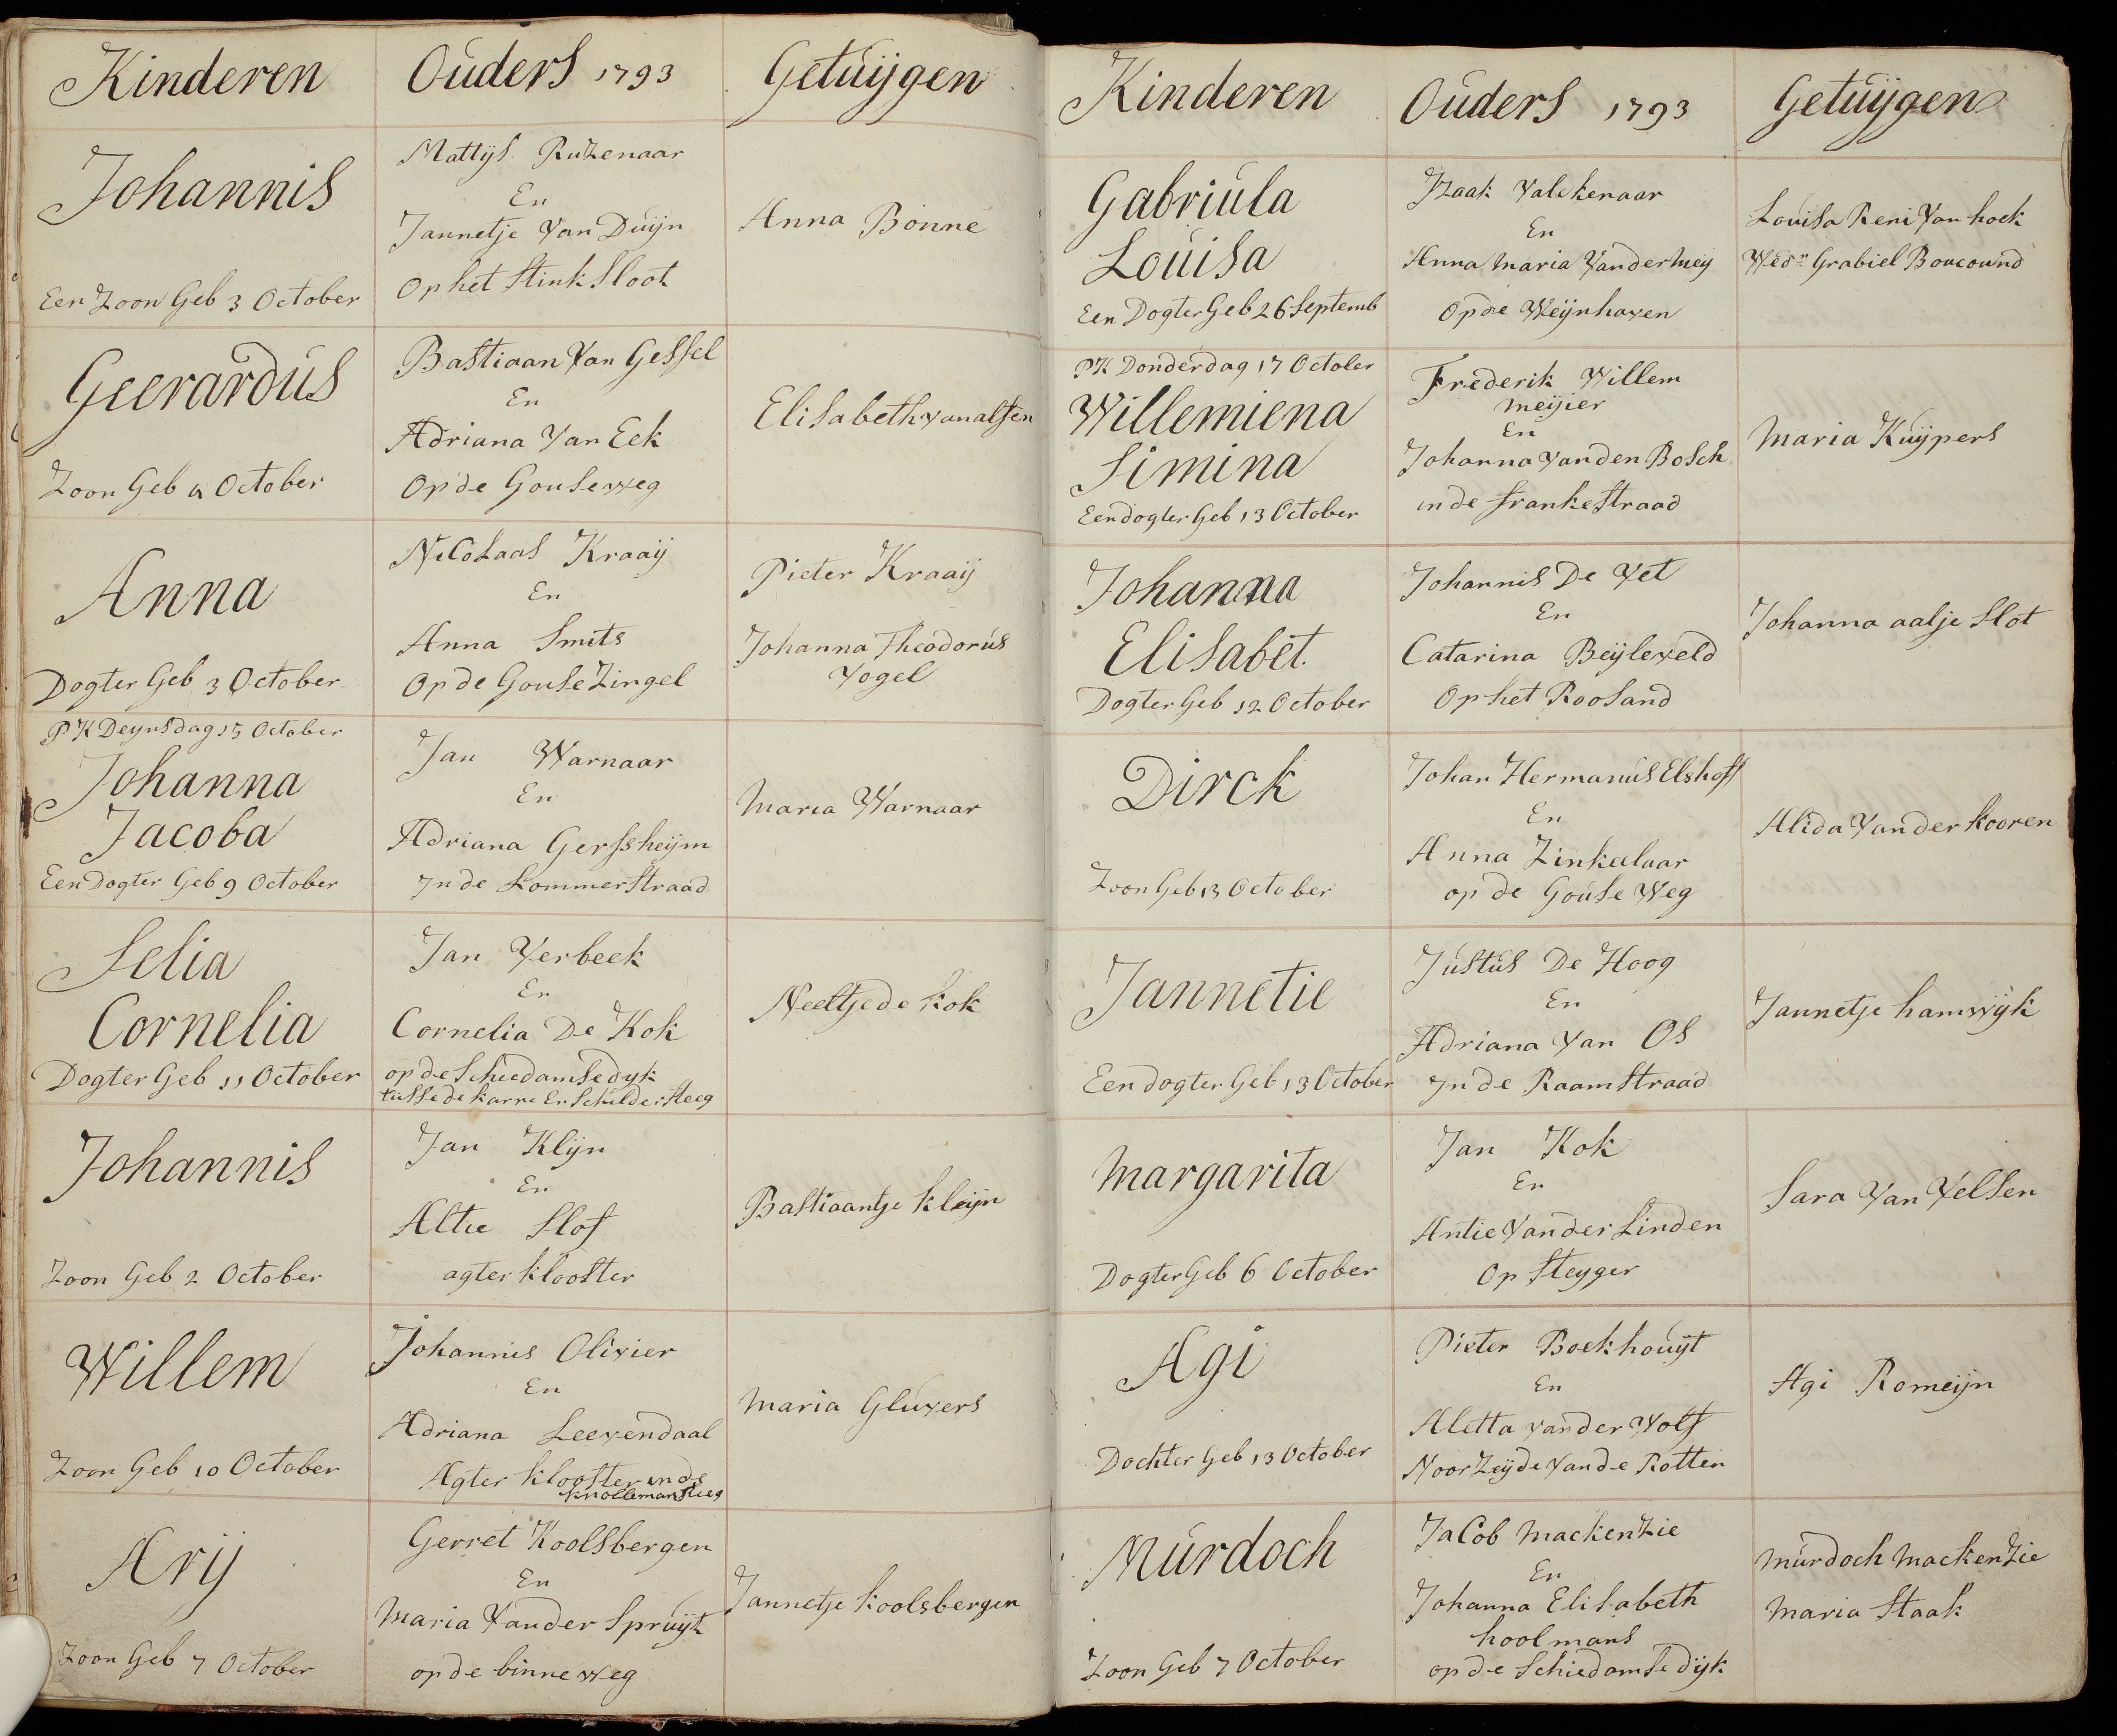 Kinderen
Ouders 1793
Getuijgen
Johannis
Een Zoon Geb 3 October
Mattijs Ruzenaar
En
Jannetje Van Duijn
Op het Stink Sloot
Anna Bonne
Geerardus
Zoon Geb 4 October
Bastiaan Van Gessel
En
Adriana Van Eek
Op de Gouseweg
Elisabeth van alsen
Anna
Dogter Geb 3 October
Nicolaas Kraaij
En
Anna Smits
Op de Gouse Zingel
Pieter Kraaij
Johanna Theodorus
Vogel
PK Deynsdag 15 October
Johanna
Jacoba
Een Dogter Geb 9 October
Jan Warnaar
En
Adriana Gerssheijm
In de Lommerstraad
Maria Warnaar
Selia
Cornelia
Dogter Geb 11 October
Jan Verbeek
En
Cornelia De Kok
op de Schiedamsedyk
tusse de karre En Schildersteeg
Neeltje de kok
Johannis
Zoon Geb 2 October
Jan Klijn
En
Altie Slof
agter klooster
Bastiaantje kleijn
Willem
Zoon Geb 10 October
Johannis Olivier
En
Adriana Leevendaal
Agter klooster in de
knollemansteeg
Maria Gluvers
Arij
Zoon Geb 7 October
Gerret Koolsbergen
En
Maria Van der Spruijt
op de binneweg
Jannetje koolsbergen
Kinderen
Ouders 1793
Getuijgen
Gabriula
Louisa
Een Dogter Geb 26 Septemb
Izaak Valckenaar
En
Anna Maria Van der Meij
Op de Weijnhaven
Louisa Reni Van hoek
Wedn Grabiel Boucound
PK Donderdag 17 October
Willemiena
Simina
Een dogter Geb 13 October
Frederik Willem
Meijier
En
Johanna Van den Bosch
in de frankestraad
Maria Kuijpers
Johanna
Elisabet.
Dogter Geb 12 October
Johannis De Vet
En
Catarina Beijleveld
Op het Roosand
Johanna aalje Slot
Dirck
Zoon Geb 13 October
Johan Hermanus Elshoff
En
Anna Zinkelaar
op de Gouse Weg
Alida Van der kooren
Jannetie
Een dogter Geb 13 October
Justus De Hoog
En
Adriana Van Os
In de Raamstraad
Jannetje hamwijk
Margarita
Dogter Geb 6 October
Jan Kok
En
Antie Van der Linden
Op Steyger
Sara Van Velsen
Agi
Dochter Geb 13 October
Pieter Boekhouijt
En
Aletta van der Wolf
Noor Zeijde Van de Rotten
Agi Romeijn
Murdoch
Zoon Geb 7 October
Jacob Mackenzie
En
Johanna Elisabeth
hoolmans
op de Schiedamse dijk
Murdoch Mackenzie
Maria Staak